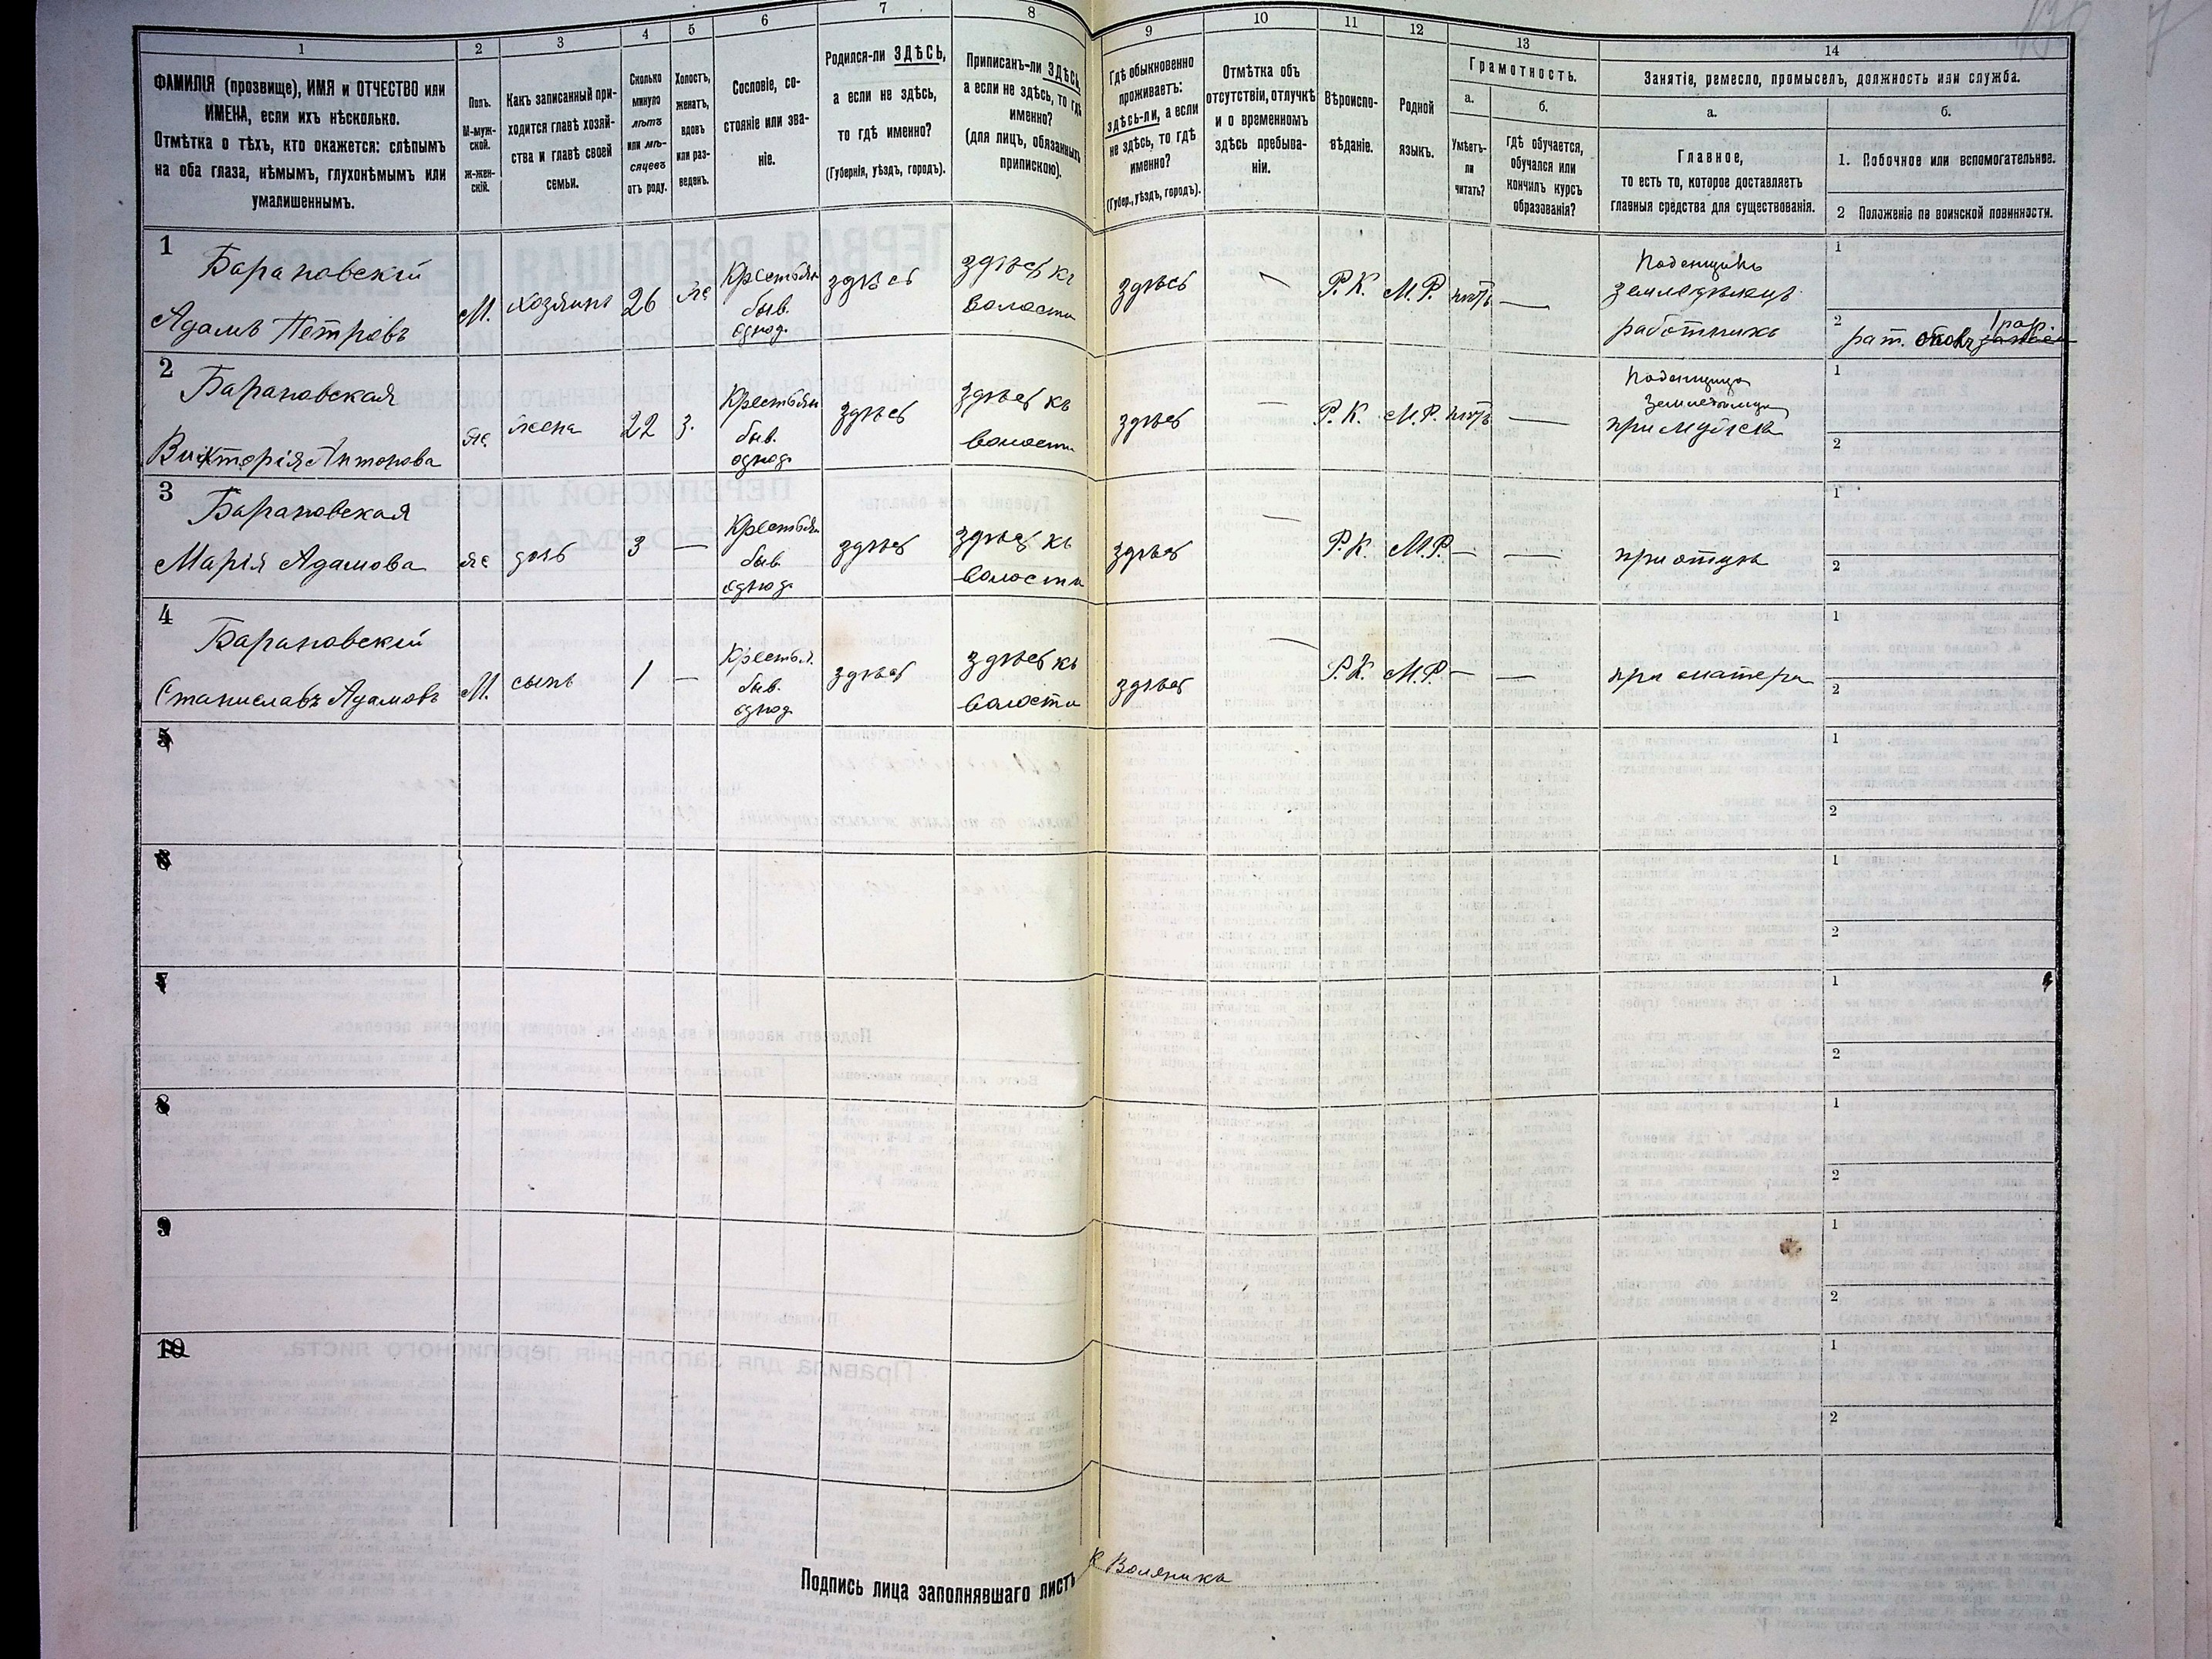 1
ФАМИЛІЯ (прозвище), ИМЯ и ОТЧЕСТВО или
ИМЕНА, если ихъ нѣсколько.
Отмѣтка о тѣхъ, кто окажется: слѣпымъ
на оба глаза, нѣмымъ, глухонѣмымъ или
умалишеннымъ.
2
Полъ.
М-муж-
ской.
ж-жен-
скій.
3
Какъ записанный при-
ходится главѣ хозяй-
ства и главѣ своей
семьи.
4
Сколько
минуло
лѣтъ
или мѣ-
сяцевъ
отъ роду.
5
Холостъ,
женатъ,
вдовъ
или раз-
веденъ.
6
Сословіе, со-
стояніе или зва-
ніе.
7
Родился-ли ЗДѢСЬ,
а если не здѣсь,
то гдѣ именно?
(Губернія, уѣздъ, городъ).
8
Приписанъ-ли ЗДѢСЬ
а если не здѣсь, то гдѣ
именно?
(для лицъ, обязанныхъ
припискою).
9
Гдѣ обыкновенно
проживаетъ:
здѣсь-ли, а если
не здѣсь, то гдѣ
именно?
(Губер., уѣздъ, городъ).
10
Отмѣтка объ
отсутствіи, отлучкѣ
и о временномъ
здѣсь пребыва-
ніи.
11
Вѣроиспо-
вѣданіе.
12
Родной
языкъ.
13
Грамотность.
а.
Умѣетъ-
ли
читать?
б.
гдѣ обучается,
обучался или
кончилъ курсъ
образованія?
14
Занятіе, ремесло, промыселъ, должность или служба.
а.
Главное,
то есть то, которое доставляетъ
главныя средства для существованія.
б.
1. Побочное или вспомогательное.
2 Положеніе по воинской повинности.
1
Барановскій
Адамъ Петровъ
М.
хозяинъ
26
же
Крестьян
быв.
однод.
здѣсь
здѣсь къ
волости
здѣсь
—
Р.К.
М.Р.
нѣтъ
—
Поденщикъ
земледѣлецъ
работникъ
1
2
рат.
2
Барановская
Викторія Антонова
же
жена
22
з.
Крестьян
быв.
однод.
здѣсь
здѣсь къ
волости
здѣсь
—
Р.К.
М.Р.
нѣтъ
—
Поденщица
при мужѣ
1
2
3
Барановская
Марія Адамова
же
дочь
3
—
Крестьян
быв.
однод.
здѣсь
здѣсь къ
волости
здѣсь
—
Р.К.
М.Р.
—
—
при отцѣ
1
2
4
Барановскій
Станиславъ Адамовъ
М.
сынъ
1
—
Крестья.
быв.
однод.
здѣсь
здѣсь къ
волости
здѣсь
—
Р.К.
М.Р.
—
—
при матери
1
2
5
1
2
6
1
2
7
1
2
8
1
2
9
1
2
10
1
2
Подпись лица заполнявшаго листъ